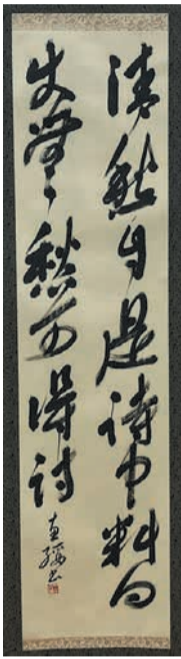 清愁自是詩中料向
使無愁可得詩
書